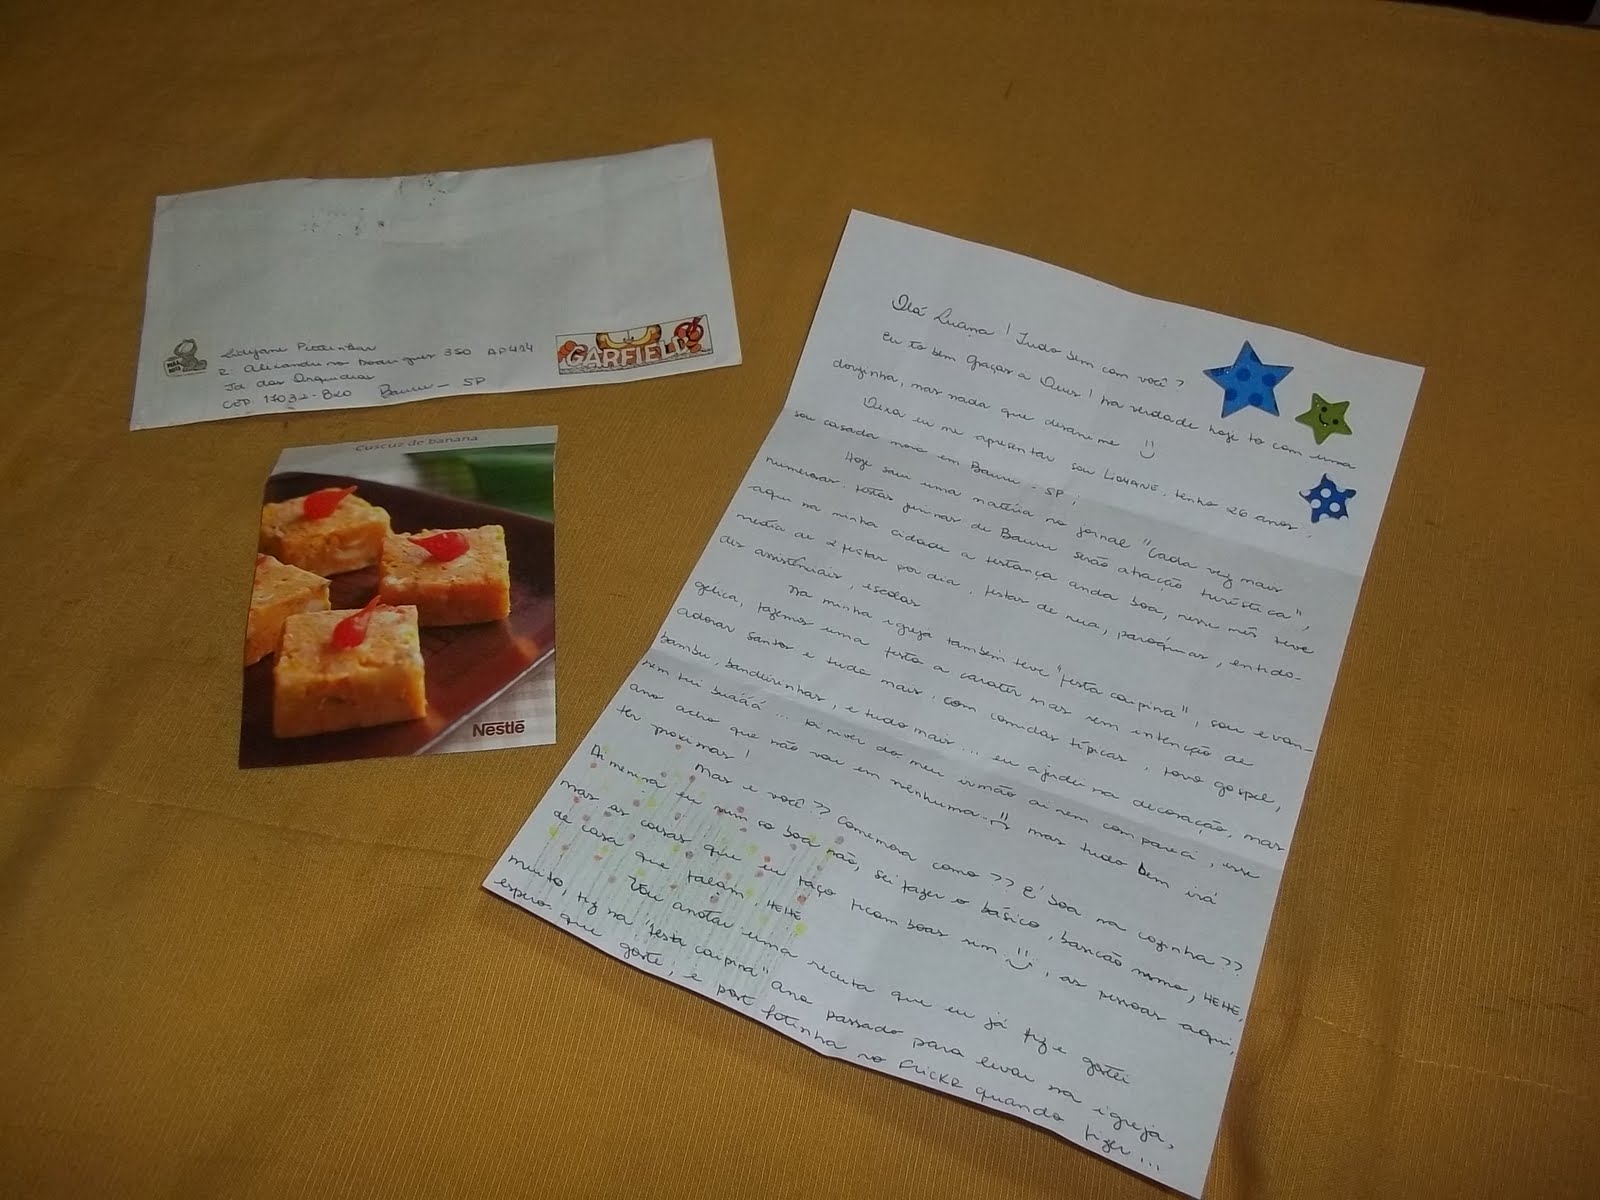 Lidyane
R. Alexandrino Domingues 350 AP 414
Jd das Orquideas
CEP 17032-820 Bauru - SP
GARFIELD
Cuscuz de banana
Nestlé
Olá Luana! Tudo bem com você?
Eu to bem Graças a Deus! na verdade hoje to com uma
dorzinha, mas nada que desanime
Deixa eu me apresentar sou LIDYANE, tenho 26 anos,
sou casada moro em Bauru - SP;
Hoje saiu uma matéria no jornal "Cada vez mais
numerosas, festas juninas de Bauru serão atração turística",
aqui na minha cidade a festança anda boa, nesse mês teve
media de 2 festas por dia, festas de rua, paróquias, entida-
des assistênciais, escolas
Na minha igreja também teve "festa caipira", sou evan-
gélica, fazemos uma festa a carater mas sem intenção de
adorar santos e tudo mais, com comidas típicas, forró gospel,
bambu, bandeirinhas, e tudo mais... eu ajudei na decoração, mas
nem fui buááá... foi niver do meu irmão ai nem compareci, esse
ano acho que não vou em nenhuma mas tudo bem irá
ter proximas!
Mas e você?? Comemora como?? É boa na cozinha??
Ai menina eu num so boa não, sei fazer o básico, basicão mesmo, HEHE,
mas as coisas que eu faço ficam boas sim, as pessoas aqui
de casa que falam. HEHE
Vou anotar uma receita que eu já fiz e gostei
muito, fiz na "festa caipira" ano passado para levar na igreja,
espero que goste, e poste fotinha no FLICKR quando fizer...